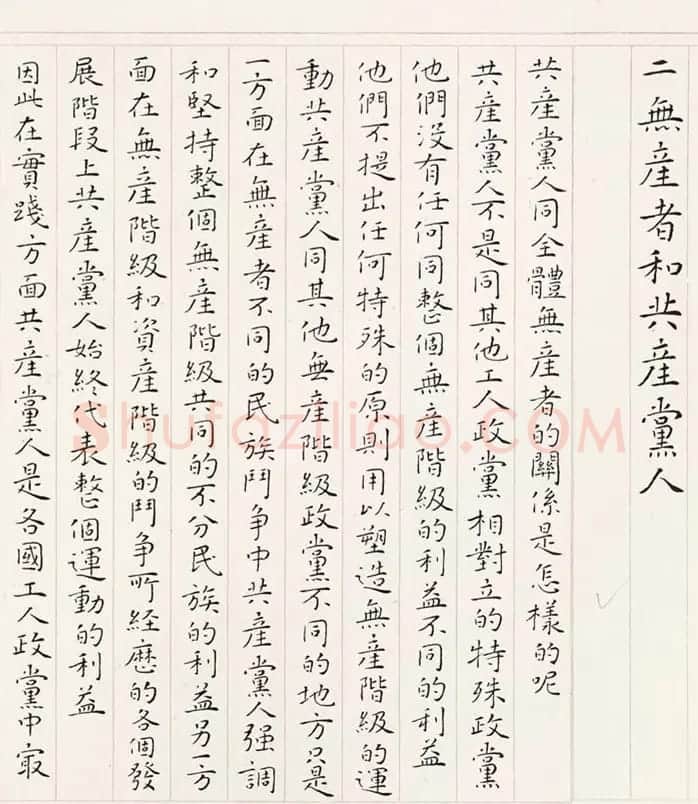 二無産者和共産黨人
共産黨人同全體無産者的關係是怎樣的呢
共産黨人不是同其他工人政黨相對立的特殊政黨
他們没有任何同整個無産階級的利益不同的利益
他們不提出任何特殊的原則用以塑造無産階級的運
動共産黨人同其他無産階級政黨不同的地方只是
一方面在無産者不同的民族鬥争中共産黨人强調
和堅持整個無産階級共同的不分民族的利益另一方
面在無産階級和資産階級的鬥争所経歷的各個發
展階段上共産黨人始終代表整個運動的利益
因此在實踐方面共産黨人是各國工人政黨中最
Shufaziliao.COM